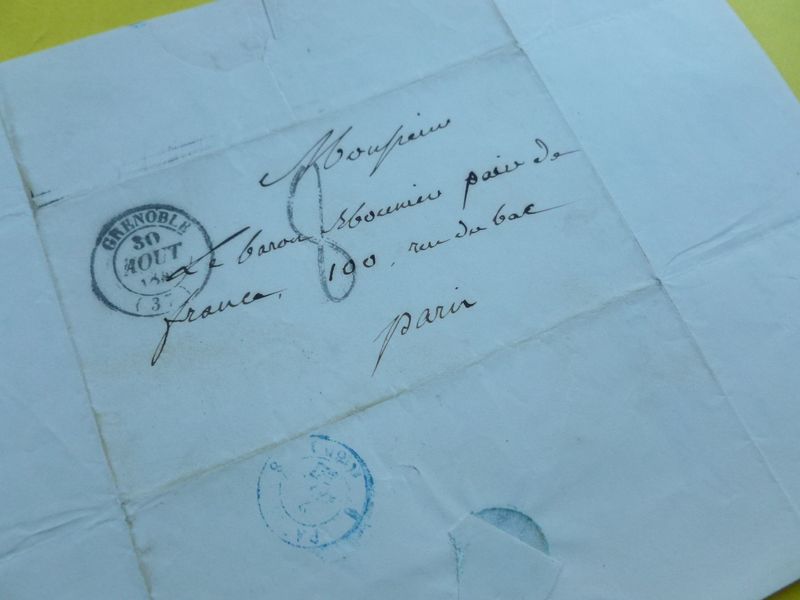 Monsieur
8
Le baron Mounier pair de
france, 100, rue du bac
paris
GRENOBLE
30
AOUT
(37)